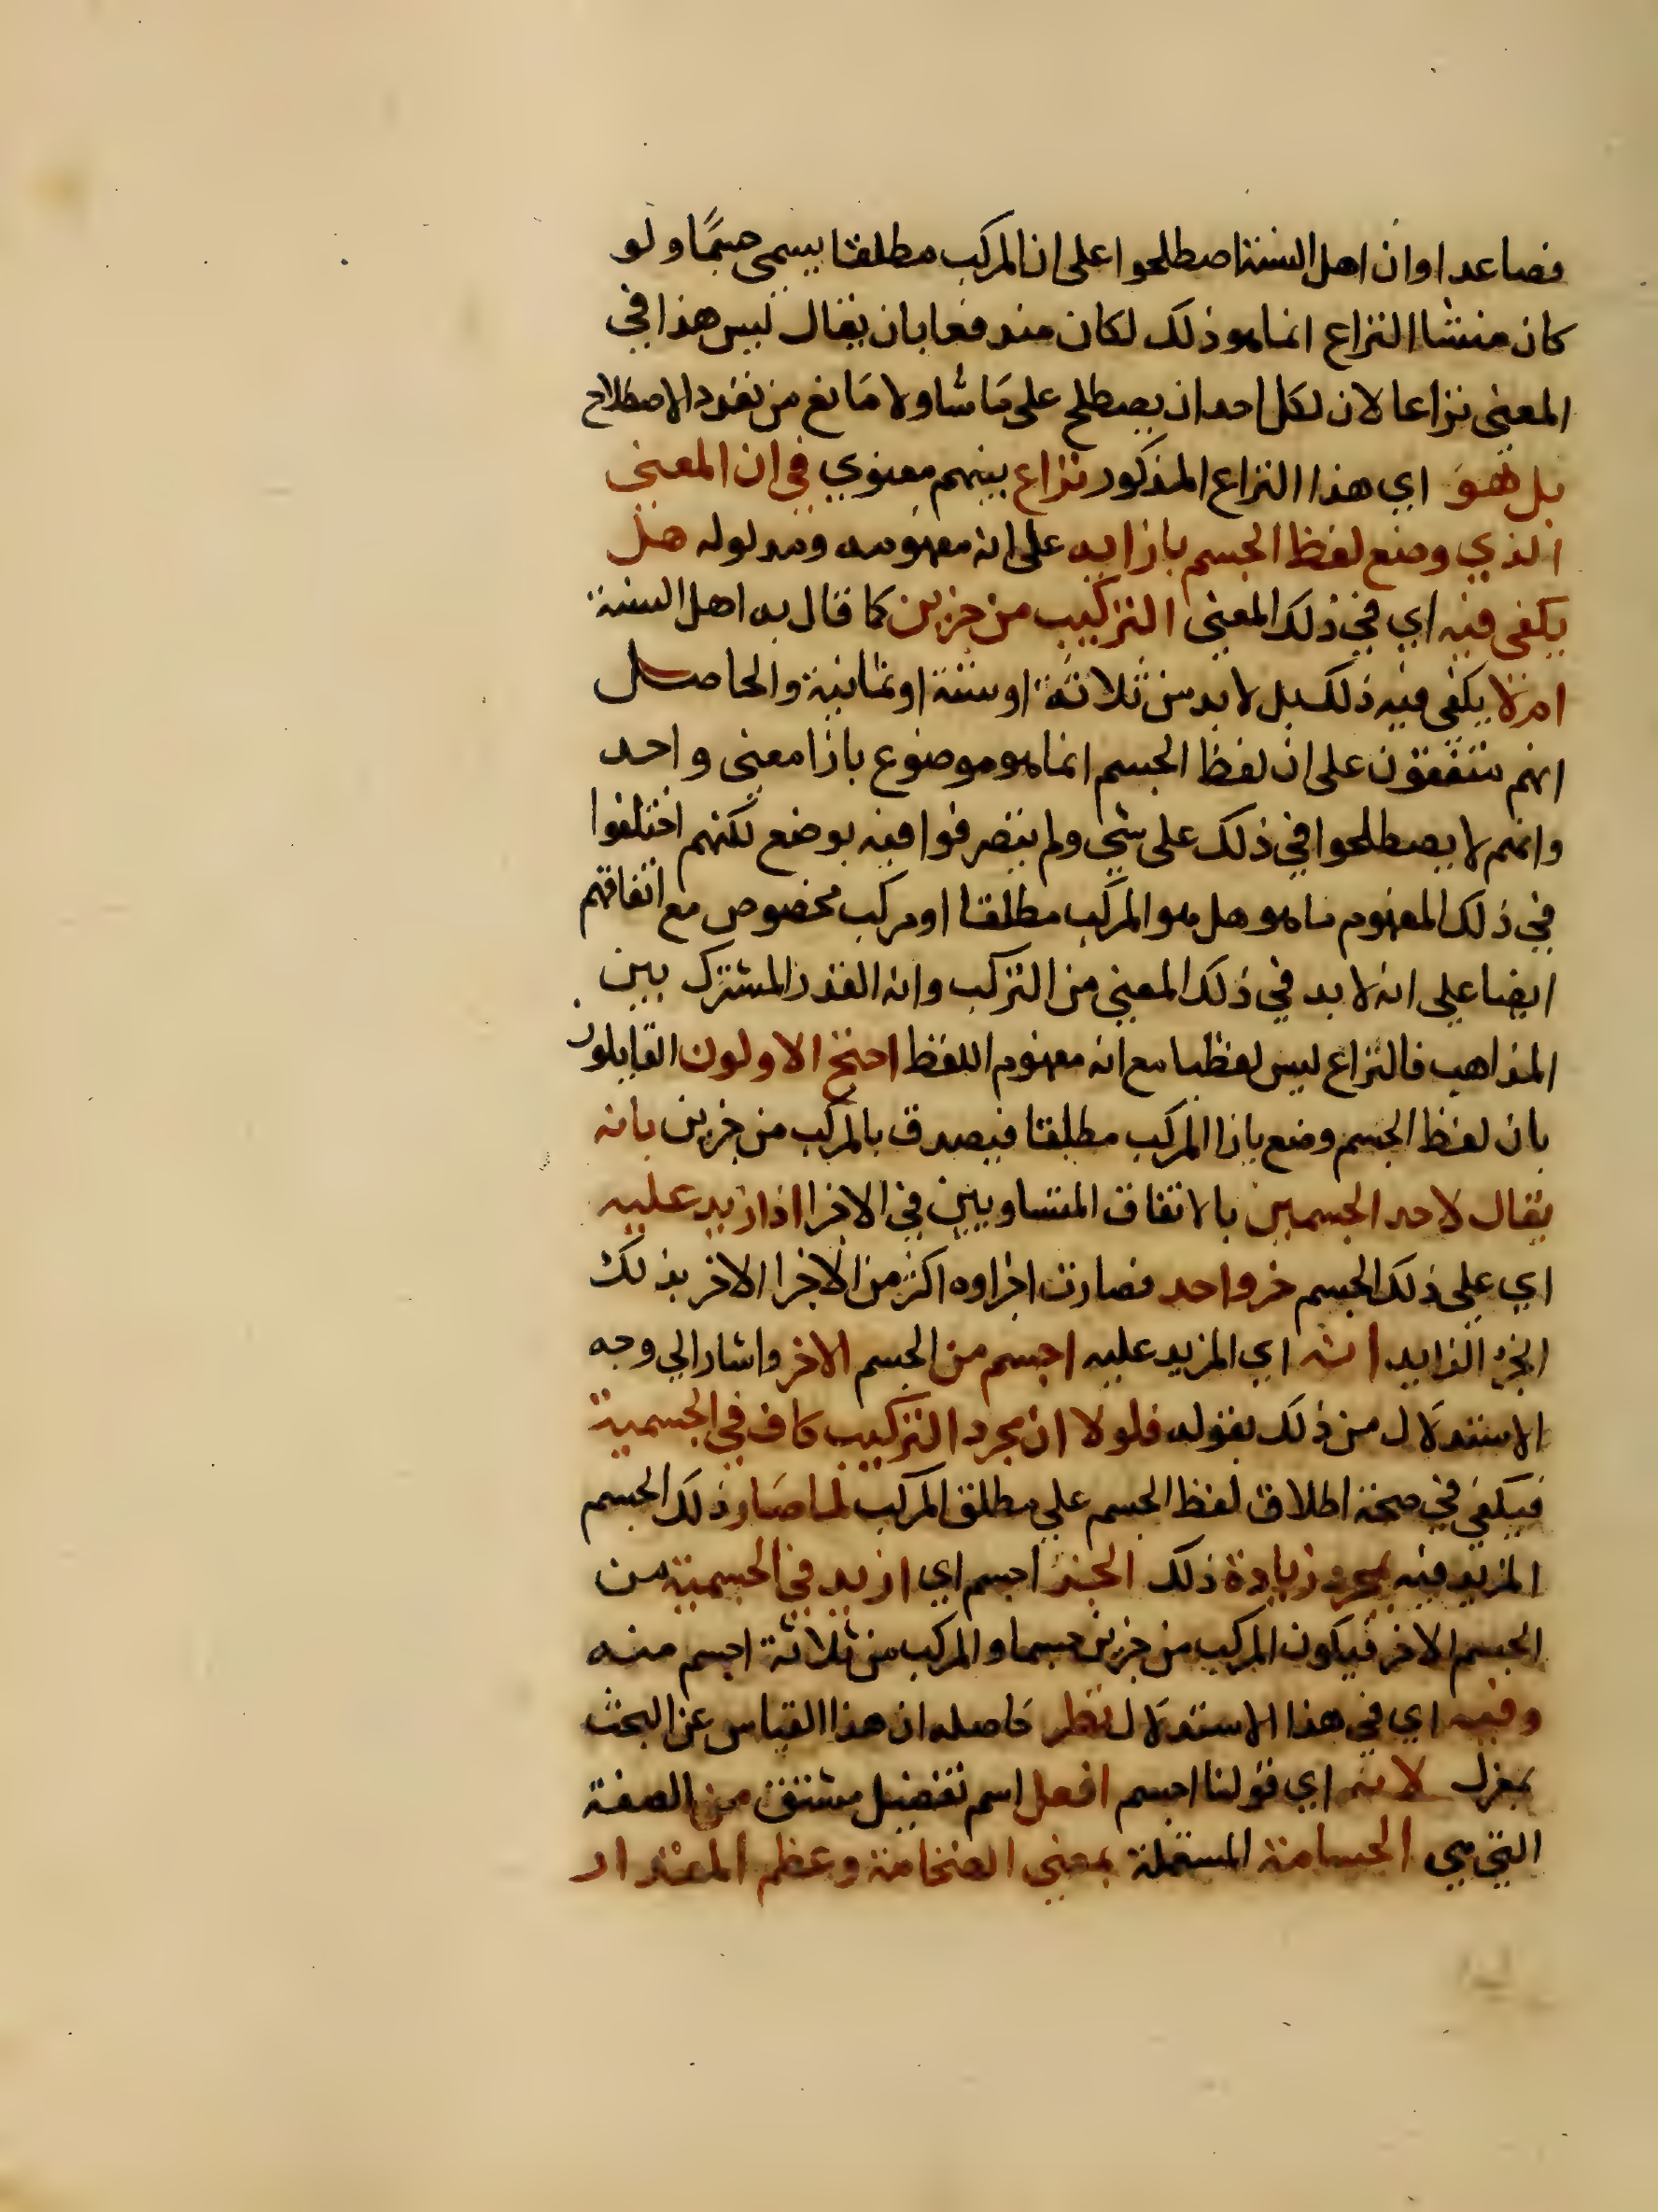 فصاعدا وان اهل السنة اصطلحوا على ان المركب مطلقا يسمى جسمًا ولو
كان منشا النزاع انما هو ذلك لكان مندفعا بان يقال ليس هذا في
المعنى نزاعا لان لكل احد ان يصطلح على ما شا ولا مانع من تعدد الاصطلاح
بل هو اي هذا النزاع المذكور نزاع بينهم معنوي في ان المعنى
الذي وضع لفظ الجسم بازايه على انه مفهومه ومدلوله هل
يكفى فيه اي في ذلك المعنى التركيب من جزين كما قال به اهل السنة
ام لا يكفى فيه ذلك بل لا بد من ثلاثة او ستة او ثمانية والحاصل
انهم متفقون على ان لفظ الجسم انما هو موضوع بازا معنى واحد
وانهم لا يصطلحوا في ذلك على شي ولم يتصرفوا فيه بوضع لكنهم اختلفوا
في ذلك المفهوم ما هو هل هو المركب مطلقا او مركب مخصوص مع اتفاقهم
ايضا على انه لا بد في ذلك المعنى من التركب وانه القدر المشترك بين
المذاهب فالنزاع ليس لفظيا مع انه مفهوم اللفظ احتج الاولون القايلون
بان لفظ الجسم وضع بازا المركب مطلقا فيصدق بالمركب من جزين بانه
يقال لاحد الجسمين بالاتفاق المتساويين في الاجزا اذا زيد عليه
اي على ذلك الجسم جز واحد فصارت اجزاوه اكثر من الاجزا الاخر بذلك
الجزء الزايد انه اي المزيد عليه اجسم من الجسم الاخر واشار الي وجه
الاستدلال من ذلك بقوله فلولا ان مجرد التركيب كاف في الجسمية
فيكفي في صحة اطلاق لفظ الجسم على مطلق المركب لما صار ذلك الجسم
المزيد فيه بمجرد زيادة ذلك الجز اجسم اي ازيد في الجسمية من
الجسم الاخر فيكون المركب من جزين جسما والمركب من ثلاثة اجسم منه
وفيه اي في هذا الاستدلال نظر حاصله ان هذا القياس عن البحث
بمعزل لانه اي قولنا اجسم افعل اسم تفضيل مشتق من الصفة
التي هي الجسامة المستعملة بمعنى الضخامة وعظم المقدار